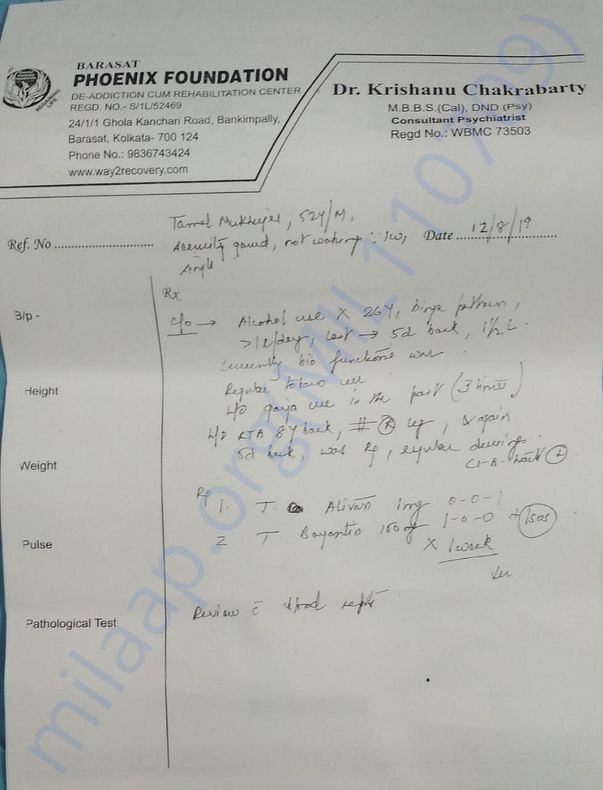 BARASAT
PHOENIX FOUNDATION
DE-ADDICTION CUM REHABILITATION CENTER
REGD. NO.- S/1L/52469
24/1/1 Ghola Kanchari Road, Bankimpally,
Barasat, Kolkata- 700 124
Phone No.: 9836743424
www.way2recovery.com
REGAINING LIFE
Dr. Krishanu Chakrabarty
M.B.B.S.(Cal), DND (Psy)
Consultant Psychiatrist
Regd No.: WBMC 73503
52Y/M,
Ref. No
security gaurd, not working
Date 12/8/19
single
Rx
B/p -
c/o → Alcohol use X 26Y, binge pattern,
/day, last → 5d back, 1½ L
currently bio functions
Height
Regular use
H/O ganja use in the past (3
H/O RTA 8Y back, # R leg, again
5d back, was regular
Weight
1. T. Ativan 1mg 0-0-1
2 T 1-0-0
X 1 week
Pulse
Review c̄ blood
Pathological Test
milaap.org